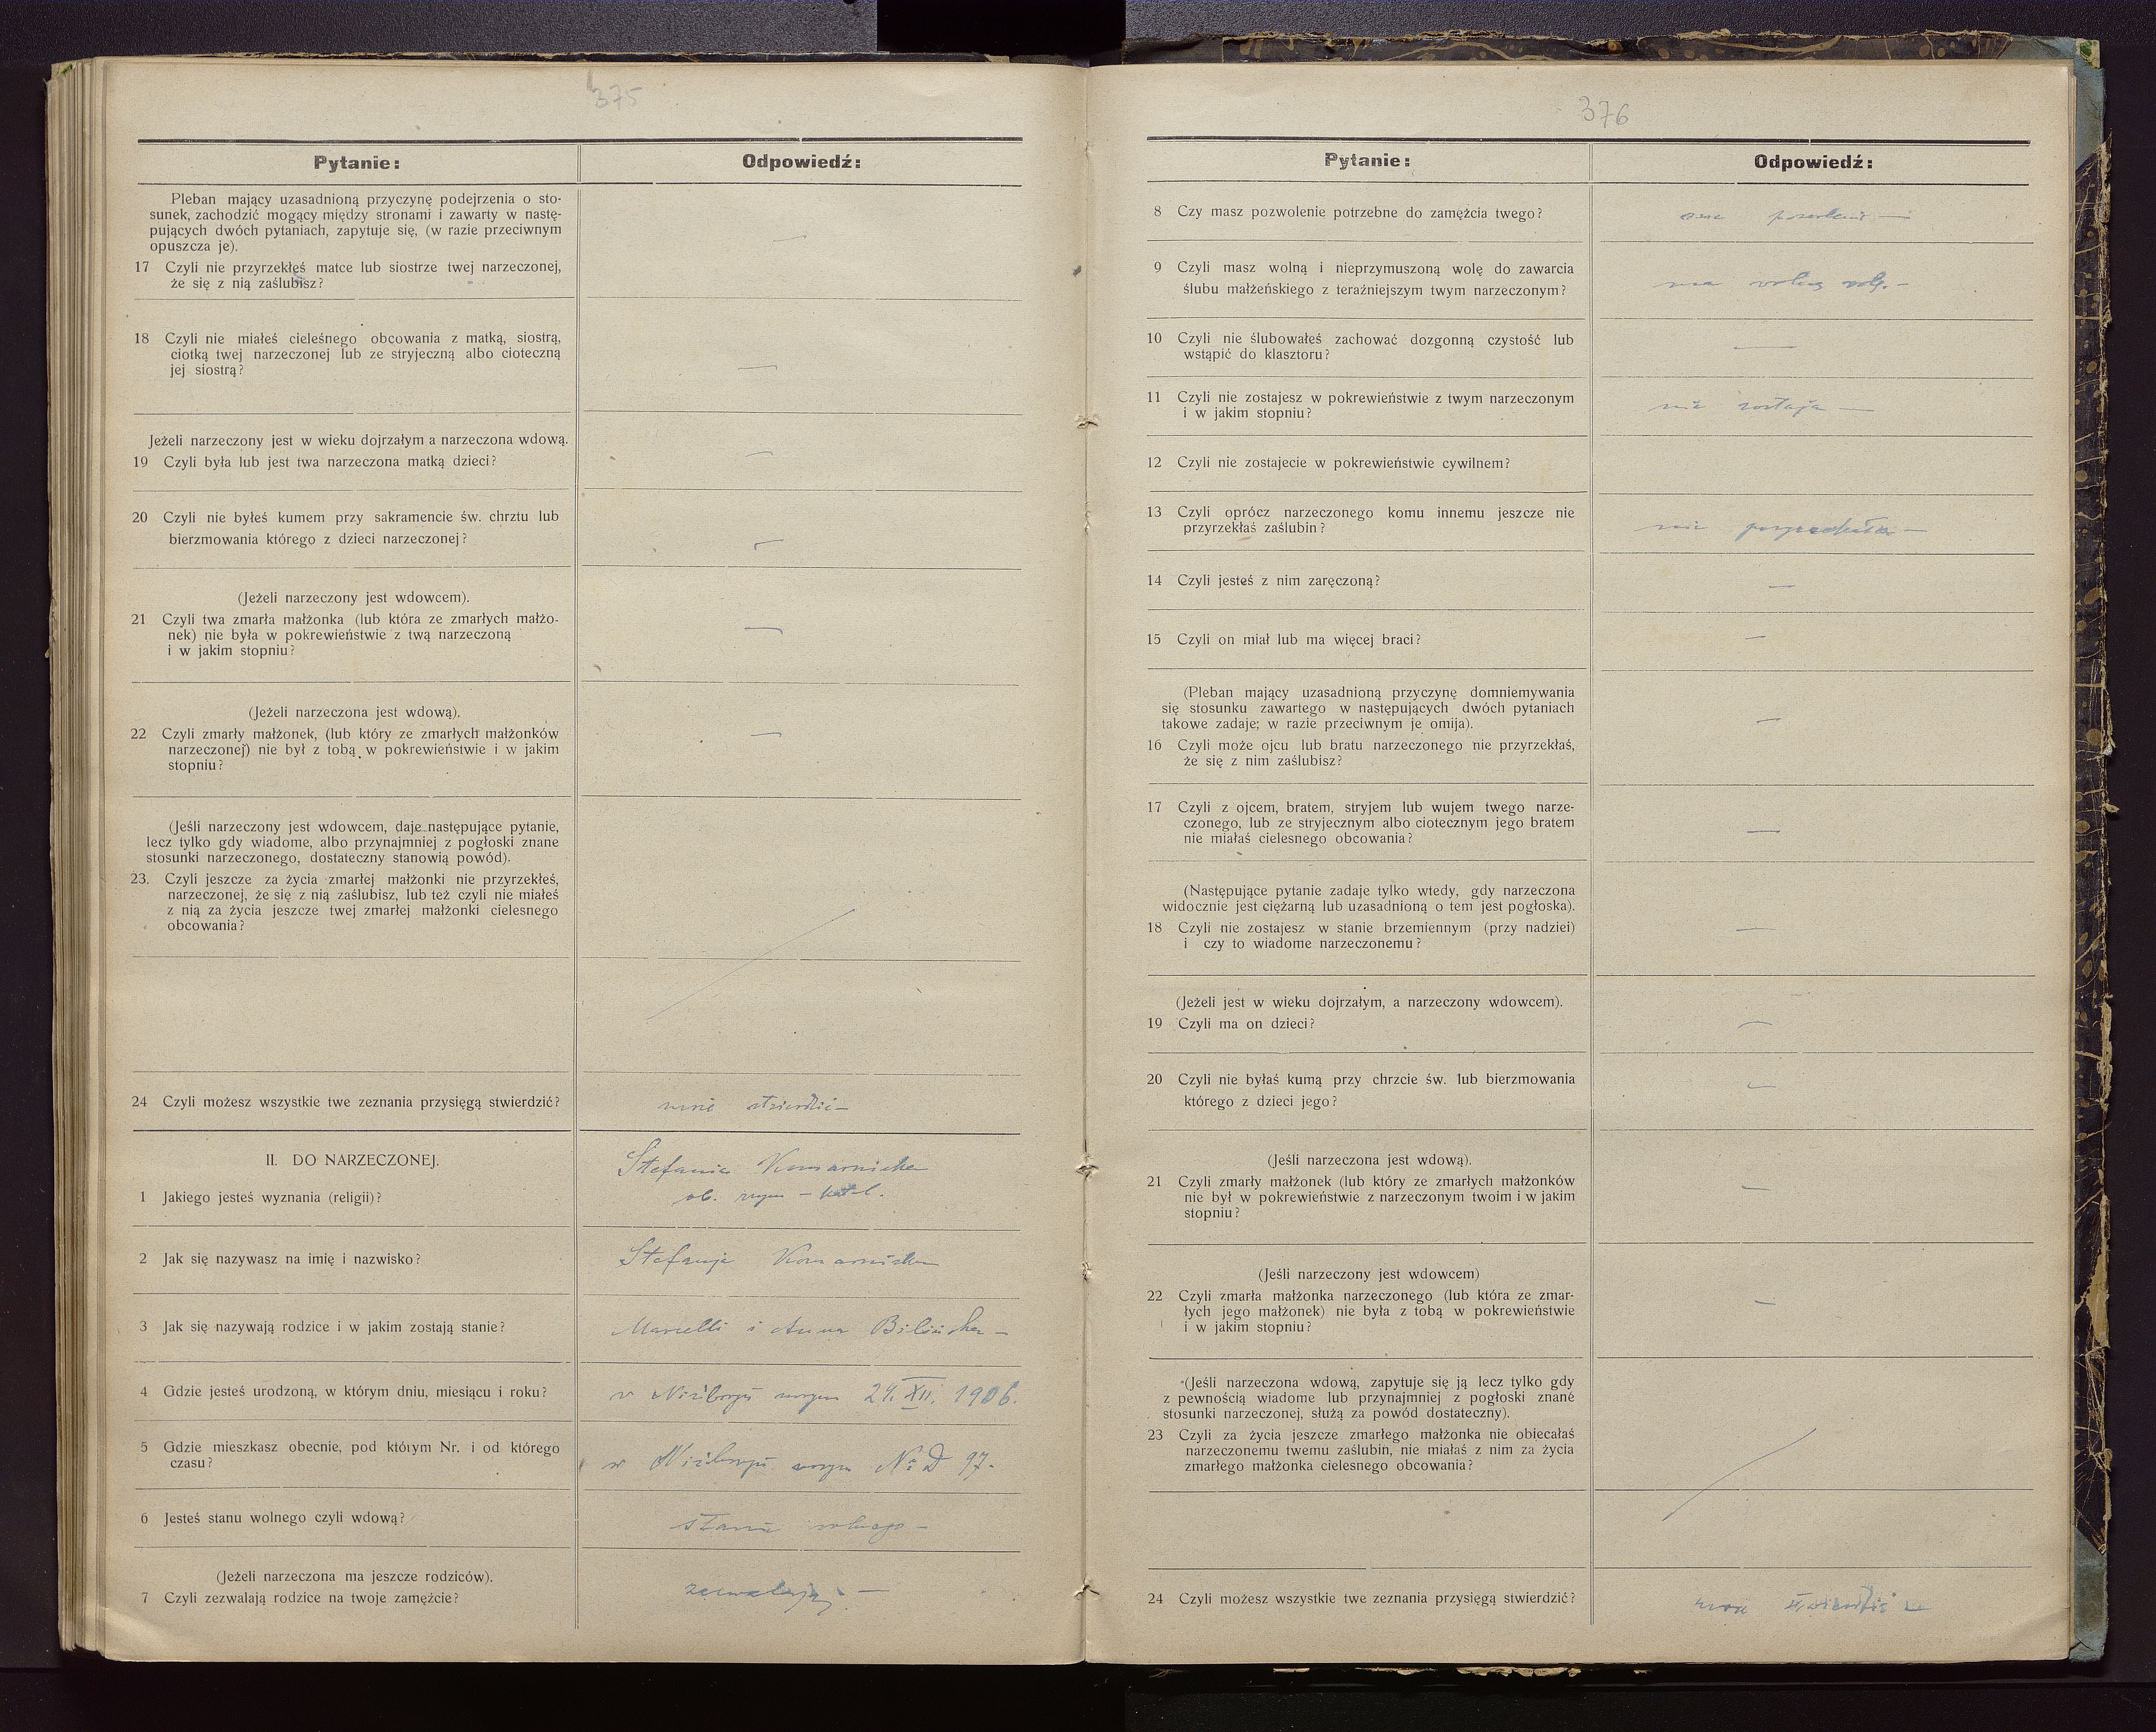 375
Pytanie:
Odpowiedź:
Pleban mający uzasadnioną przyczynę podejrzenia o sto-
sunek, zachodzić mogący między stronami i zawarty w nastę-
pujących dwóch pytaniach, zapytuje się, (w razie przeciwnym
opuszcza je).
17 Czyli nie przyrzekłęś matce lub siostrze twej narzeczonej,
że się z nią zaślubisz?
—
18 Czyli nie miałeś cieleśnego obcowania z matką, siostrą,
ciotką twej narzeczonej lub ze stryjeczną albo cioteczną
jej siostrą?
—
Jeżeli narzeczony jest w wieku dojrzałym a narzeczona wdową.
19 Czyli była lub jest twa narzeczona matką dzieci?
—
20 Czyli nie byłeś kumem przy sakramencie św. chrztu lub
bierzmowania którego z dzieci narzeczonej?
—
(Jeżeli narzeczony jest wdowcem).
21 Czyli twa zmarła małżonka (lub która ze zmarłych małżo-
nek) nie była w pokrewieństwie z twą narzeczoną
i w jakim stopniu?
—
(Jeżeli narzeczona jest wdową).
22 Czyli zmarły małżonek, (lub który ze zmarłych małżonków
narzeczonej) nie był z tobą w pokrewieństwie i w jakim
stopniu?
—
(Jeśli narzeczony jest wdowcem, daje następujące pytanie,
lecz tylko gdy wiadome, albo przynajmniej z pogłoski znane
stosunki narzeczonego, dostateczny stanowią powód).
23. Czyli jeszcze za życia zmarłej małżonki nie przyrzekłeś,
narzeczonej, że się z nią zaślubisz, lub też czyli nie miałeś
z nią za życia jeszcze twej zmarłej małżonki cielesnego
obcowania?
24 Czyli możesz wszystkie twe zeznania przysięgą stwierdzić?
II. DO NARZECZONEJ.
Stefania Komarnicka
1 Jakiego jesteś wyznania (religii)?
ob. rzym - kat.
2 Jak się nazywasz na imię i nazwisko?
Stefanja Komarnicka
3 Jak się nazywają rodzice i w jakim zostają stanie?
i Anna Bilińska —
4 Gdzie jesteś urodzoną, w którym dniu, miesiącu i roku?
w 24. XII. 1906.
5 Gdzie mieszkasz obecnie, pod którym Nr. i od którego
czasu?
w No D 97.
6 Jesteś stanu wolnego czyli wdową?
stanu wolnego —
(Jeżeli narzeczona ma jeszcze rodziców).
7 Czyli zezwalają rodzice na twoje zamęźcie?
zezwalają. —
376
Pytanie:
Odpowiedź:
8 Czy masz pozwolenie potrzebne do zamężcia twego?
ma pozwolenie —
9 Czyli masz wolną i nieprzymuszoną wolę do zawarcia
ślubu małżeńskiego z teraźniejszym twym narzeczonym?
ma wolną wolę. —
10 Czyli nie ślubowałeś zachować dozgonną czystość lub
wstąpić do klasztoru?
—
11 Czyli nie zostajesz w pokrewieństwie z twym narzeczonym
i w jakim stopniu?
nie zostaje —
12 Czyli nie zostajecie w pokrewieństwie cywilnem?
13 Czyli oprócz narzeczonego komu innemu jeszcze nie
przyrzekłaś zaślubin?
nie przyrzekała —
14 Czyli jesteś z nim zaręczoną?
—
15 Czyli on miał lub ma więcej braci?
—
(Pleban mający uzasadnioną przyczynę domniemywania
się stosunku zawartego w następujących dwóch pytaniach
takowe zadaje; w razie przeciwnym je omija).
16 Czyli może ojcu lub bratu narzeczonego nie przyrzekłaś,
że się z nim zaślubisz?
—
17 Czyli z ojcem, bratem, stryjem lub wujem twego narze-
czonego, lub ze stryjecznym albo ciotecznym jego bratem
nie miałaś cielesnego obcowania?
—
(Następujące pytanie zadaje tylko wtedy, gdy narzeczona
widocznie jest ciężarną lub uzasadnioną o tem jest pogłoska).
18 Czyli nie zostajesz w stanie brzemiennym (przy nadziei)
i czy to wiadome narzeczonemu?
—
(Jeżeli jest w wieku dojrzałym, a narzeczony wdowcem).
19 Czyli ma on dzieci?
—
20 Czyli nie byłaś kumą przy chrzcie św. lub bierzmowania
którego z dzieci jego?
—
(Jeśli narzeczona jest wdową).
21 Czyli zmarły małżonek (lub który ze zmarłych małżonków
nie był w pokrewieństwie z narzeczonym twoim i w jakim
stopniu?
—
(Jeśli narzeczony jest wdowcem)
22 Czyli zmarła małżonka narzeczonego (lub która ze zmar-
łych jego małżonek) nie była z tobą w pokrewieństwie
i w jakim stopniu?
—
(Jeśli narzeczona wdową, zapytuje się ją lecz tylko gdy
z pewnością wiadome lub przynajmniej z pogłoski znane
stosunki narzeczonej, służą za powód dostateczny).
23 Czyli za życia jeszcze zmarłego małżonka nie obiecałaś
narzeczonemu twemu zaślubin, nie miałaś z nim za życia
zmarłego małżonka cielesnego obcowania?
24 Czyli możesz wszystkie twe zeznania przysięgą stwierdzić?